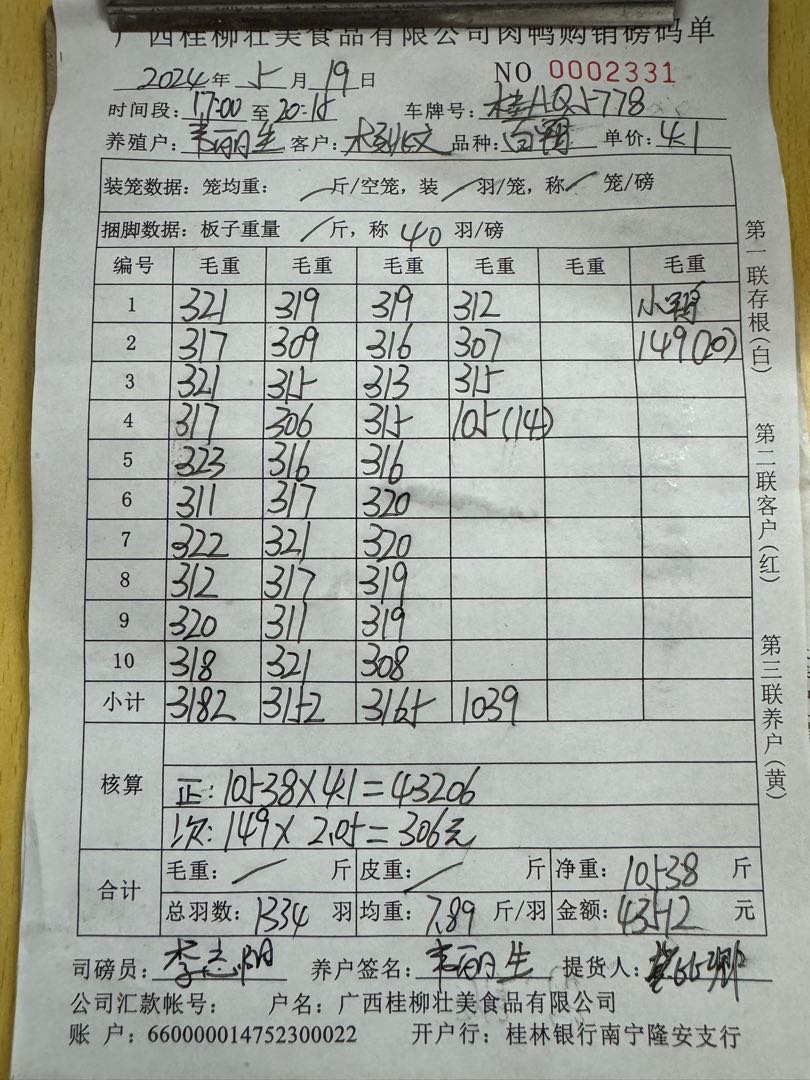 广西桂柳壮美食品有限公司肉鸭购销磅码单
2024年5月19日 NO 0002331
时间段:17:00至20:15 车牌号:桂AQ5778
养殖户:韦丽生 客户: 品种:白鸭 单价:4.1
装笼数据:笼均重: / 斤/空笼,装 / 羽/笼,称 / 笼/磅
捆脚数据:板子重量 / 斤,称 40 羽/磅
编号 毛重 毛重 毛重 毛重 毛重 毛重
1 321 319 319 312 小鸭
2 317 309 316 307 149(20)
3 321 315 313 315
4 317 306 315 105(14)
5 323 316 316
6 311 317 320
7 322 321 320
8 312 317 319
9 320 311 319
10 318 321 308
小计 3182 3152 3165 1039
核算
正:10538×4.1=43206
次:149×2.05=306元
合计 毛重: / 斤 皮重: / 斤 净重:10538斤
总羽数:1334羽 均重:7.89斤/羽 金额:43512元
司磅员:李志阳 养户签名:韦丽生 提货人:
公司汇款帐号: 户名:广西桂柳壮美食品有限公司
账 户:660000014752300022 开户行:桂林银行南宁隆安支行
第一联存根(白)
第二联客户(红)
第三联养户(黄)